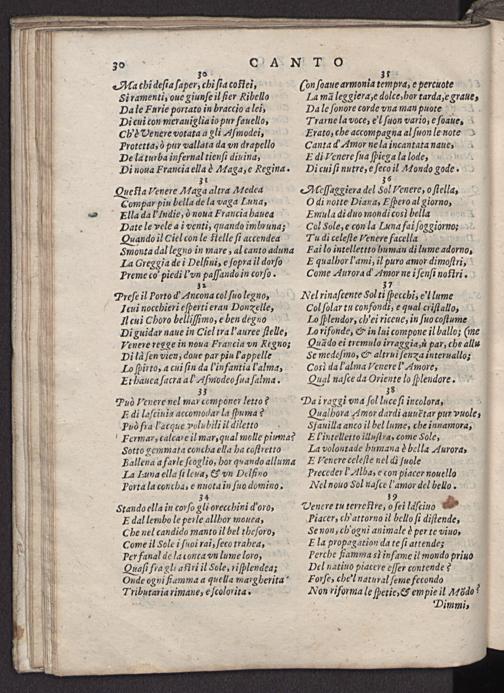 30
CANTO
30
Ma chi desia saper, chi sia costei,
Si ramenti, oue giunse il fier Ribello
Da le Furie portato in braccio a lei,
Di cui con merauiglia io pur fauello,
Ch'è Venere votata a gli Asmodei,
Protetta, ò pur vallata da vn drapello
De la turba infernal tiensi diuina,
Di noua Francia ell'è Maga, e Regina.
31
Questa Venere Maga altra Medea
Compar piu bella de la vaga Luna,
Ella da l'Indie, ò noua Francia hauea
Date le vele a i venti, quando imbruna;
Quando il Ciel con le stelle si accendea
Smonta dal legno in mare, al canto aduna
La Greggia de i Delfini, e sopra il dorso
Preme co' piedi l'un passando in corso.
32
Prese il Porto d'Ancona col suo legno,
I cui nocchieri esperti eran Donzelle,
Il cui Choro bellissimo, e ben degno
Di guidar naue in Ciel tra l'auree stelle,
Venere regge in noua Francia vn Regno;
Di là sen vien, doue par piu l'appelle
Lo spirto, a cui sin da l'infantia l'alma,
Et hauea sacra a l'Asmodeo sua salma.
33
Può Venere nel mar componer letto?
E di lasciuia accomodar la spuma?
Può fra l'acque volubili il diletto
Fermar, calcare il mar, qual molle piuma?
Sotto gemmata concha ella ha costretto
Ballena a farle scoglio, hor quando alluma
La Luna ella si leua, & vn Delfino
Porta la concha, e nuota in suo domino.
34
Stando ella in corso gli orecchini d'oro,
E dal lembo le perle allhor mouea,
Che nel candido manto il bel thesoro,
Come il Sole i suoi rai, seco trahea,
Per fanal de la conca vn lume loro,
Quasi fra gli astri il Sole, risplendea;
Onde ogni fiamma a quella margherita
Tributaria rimane, e scolorita.
35
Con soaue armonia tempra, e percuote
La mã leggiera, e dolce, hor tarda, e graue,
Da le sonore corde vna man puote
Trarne la voce, e'l suon vario, e soaue,
Erato, che accompagna al suon le note
Canta d'Amor ne la incantata naue,
E di Venere sua spiega la lode,
Di cui si nutre, e seco il Mondo gode.
36
Messaggiera del Sol Venere, o stella,
O di notte Diana, Espero al giorno,
Emula di duo mondi così bella
Col Sole, e con la Luna fai soggiorno;
Tu di celeste Venere facella
Fai lo intelletto human di lume adorno,
E qualhor l'ami, il puro amor dimostri,
Come Aurora d'Amor ne i sensi nostri.
37
Nel rinascente Sol ti specchi, e'l lume
Col solar tu confondi, e qual cristallo,
Lo splendor, ch'ei riceue, in suo costume
Lo rifonde, & in lui compone il ballo; (me
Quãdo ei tremulo irraggia, ù par, che allu
Se medesmo, & altrui senza interuallo;
Così da l'alma Venere l'Amore,
Qual nasce da Oriente lo splendore.
38
Da i raggi vna sol luce si incolora,
Qualhora Amor dardi auuẽtar pur vuole,
Sfauilla anco il bel lume, che innamora,
E l'intelletto illustra, come Sole,
La volontade humana è bella Aurora,
E Venere celeste nel dì suole
Preceder l'Alba, e con piacer nouello
Nel nouo Sol nasce l'amor del bello.
39
Venere tu terrestre, o sei làscino
Piacer, ch'attorno il bello si distende,
Se non, ch'ogni animale è per te viuo,
E la propagation da te si attende;
Perche fiamma sì infame il mondo priuo
Del natiuo piacere esser contende?
Forse, che'l natural seme fecondo
Non riforma le spetie, & empie il Mõdo?
Dimmi,